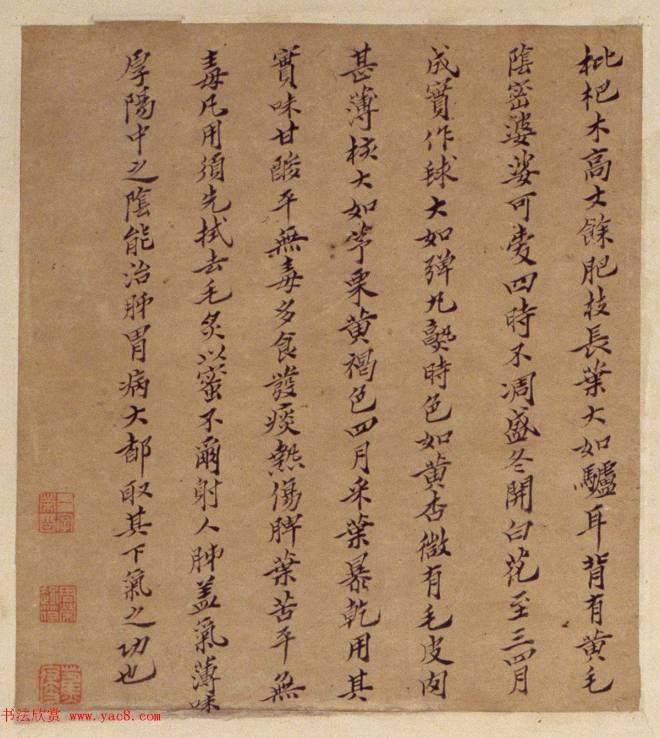 枇杷木高丈餘肥枝長葉大如驢耳背有黄毛
陰密婆娑可愛四時不凋盛冬開白花至三四月
成實作毬大如彈丸熟時色如黄杏微有毛皮肉
甚薄核大如茅栗黄褐色四月采葉暴乾用其
實味甘酸平無毒多食發痰熱傷脾葉苦平無
毒凡用須先拭去毛炙以蜜不爾射人肺盖氣薄味
厚陽中之陰能治肺胃病大都取其下氣之功也
书法欣赏 www.yac8.com